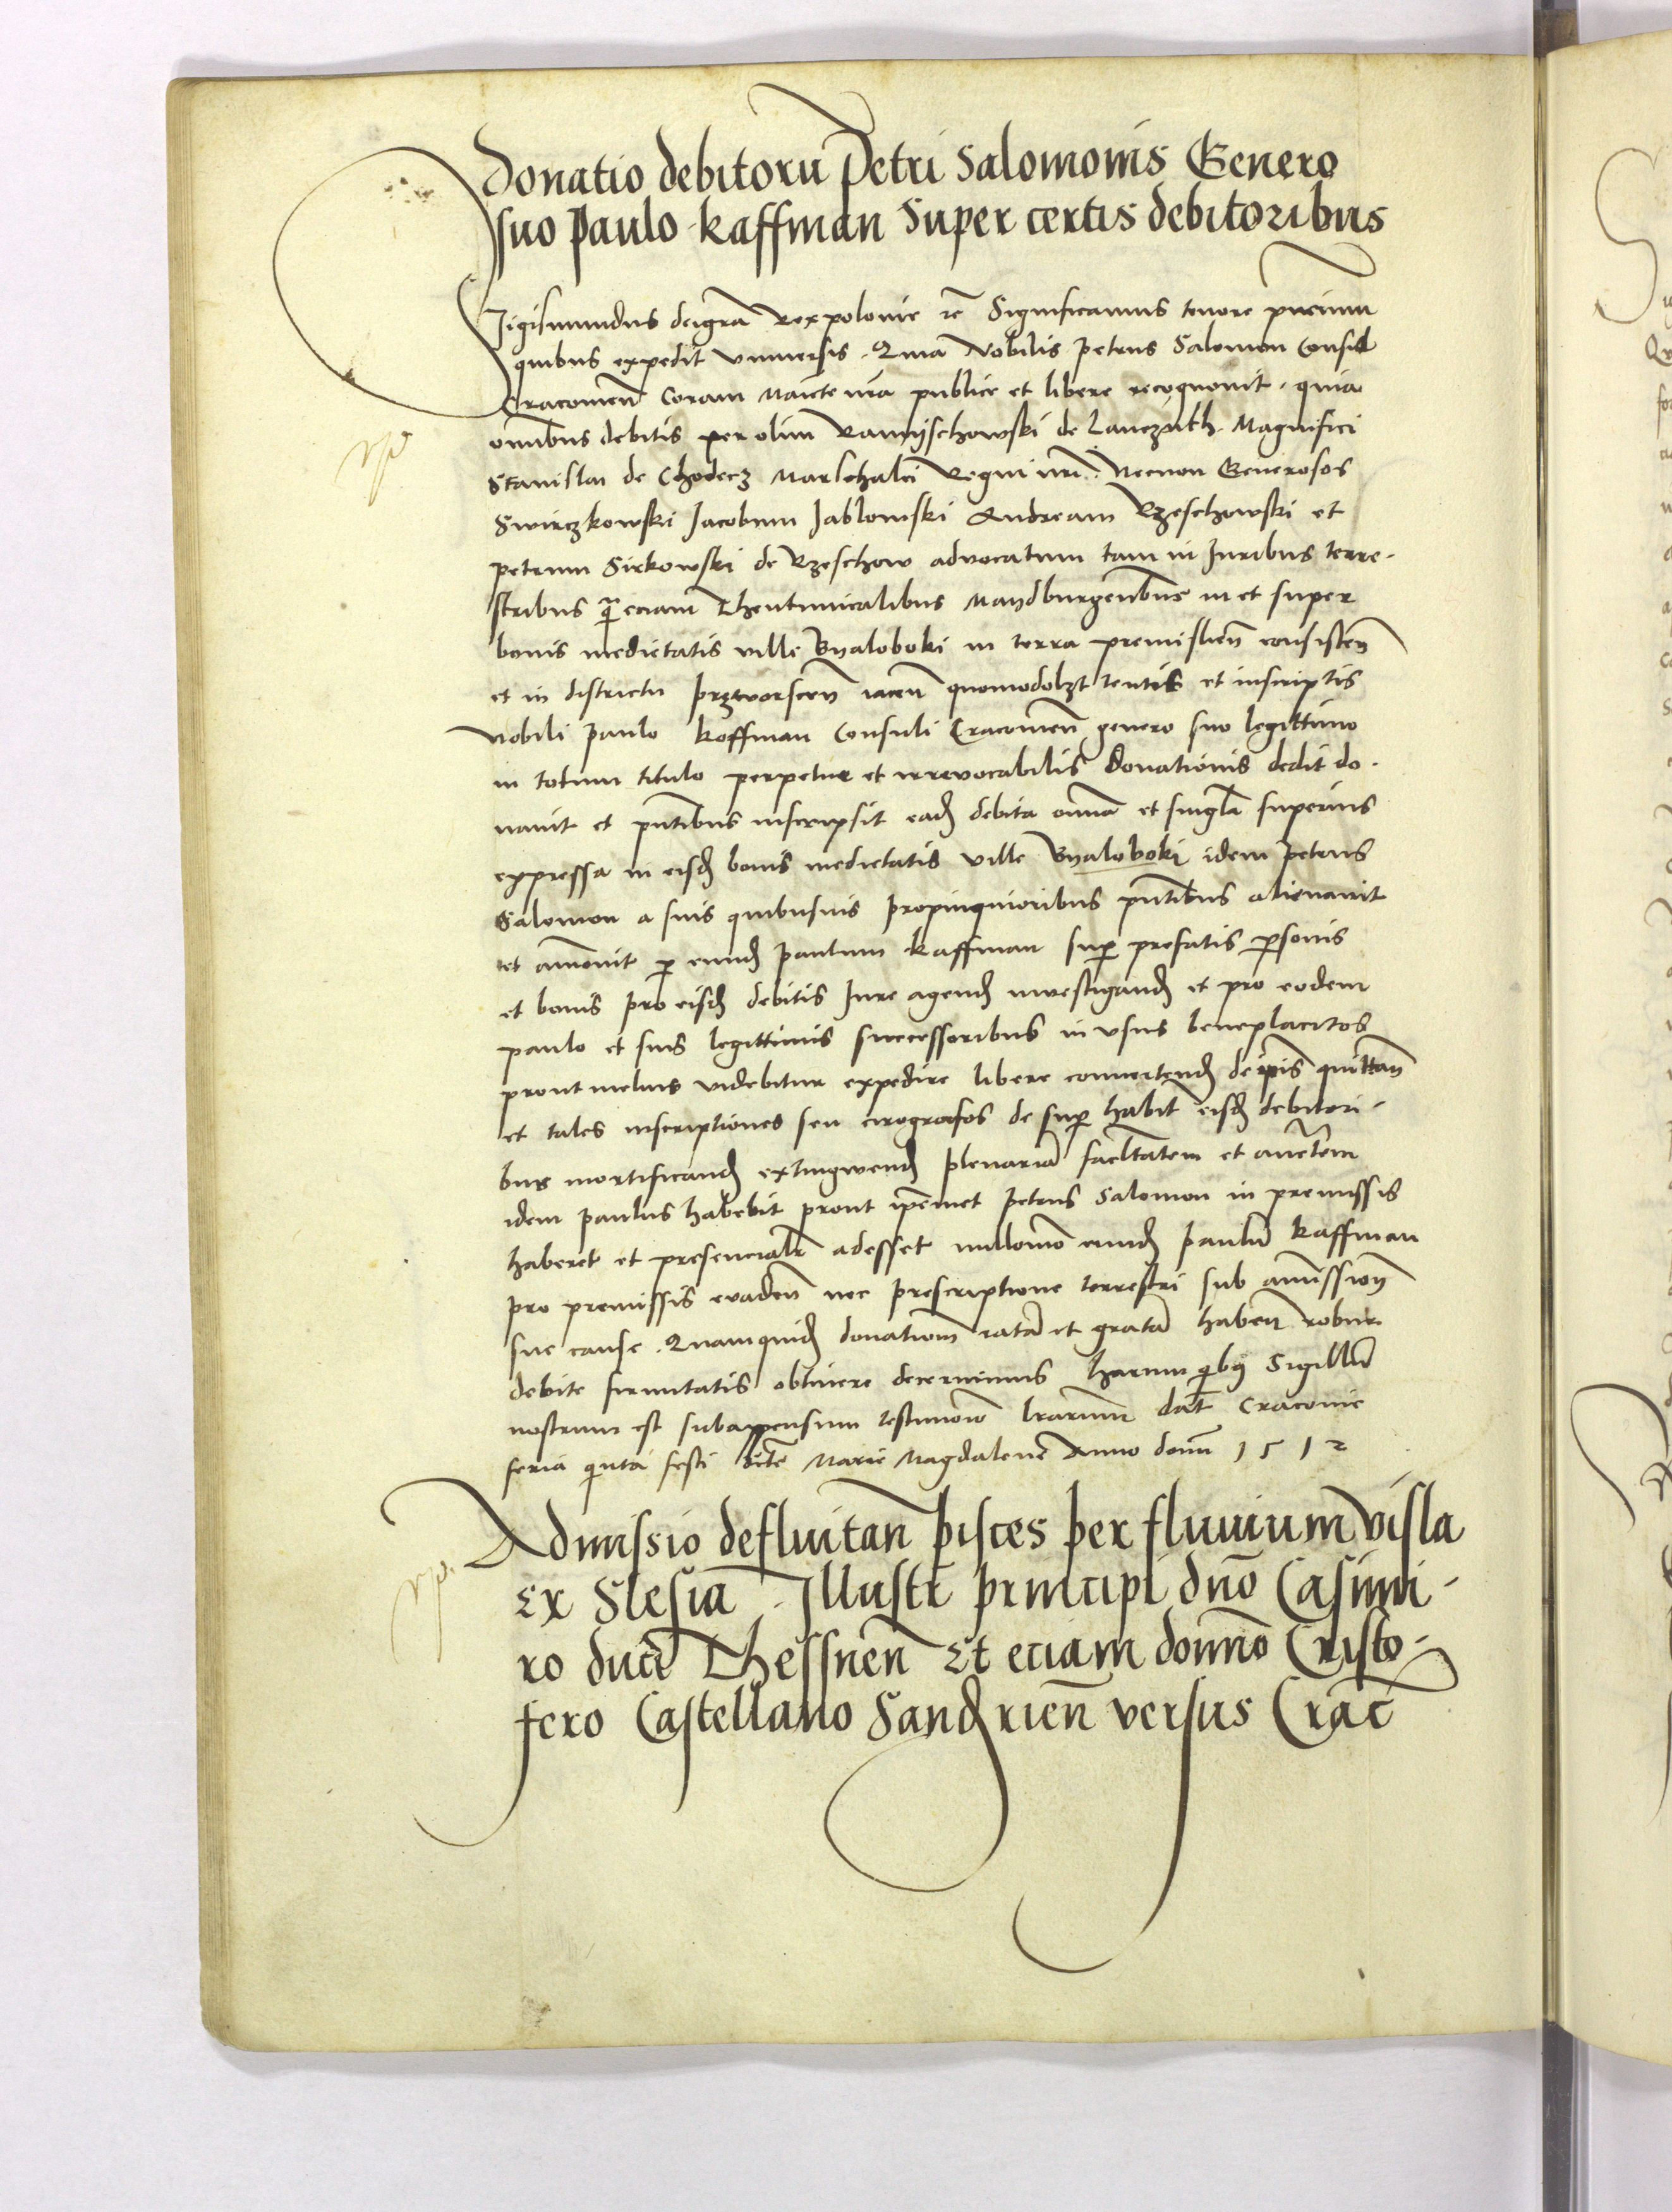 Donatio debitorū Petri Salomonis Genero
suo Paulo kaffman Super certis debitoribus
Sigismundus dei gra Rex polonie rc Significamus tenore pncium
quibus expedit universis . Quia Nobilis petrus Salomon Consul
Cracovien Coram Mаtе nra publice et libere recognovit . quia
omibus debitis per olim de Lanczuth . Magnifici
Stanislai de Chodecz Marschalci Regni nri . Necnon Generosos
Swirczkowski Jacobum Jablonski Andream Rzeschowski et
petrum Sirkowski de Rzeschow advocatum tam in Juribus terre-
stribus q̄ eciam Theutunicalibus Maydburgenbus in et super
bonis medietatis ville Byaloboki in terra premislien consisten
et in districtu przeworscen iacen quomodolzt tentis et inscriptis
Nobili paulo koffman Consuli Cracovien genero suo legittimo
in totum titulo perpetue et irrevocabilis donationis dedit do-
navit et pntibus inscripsit ead debita omia et singla superius
expressa in eisd bonis medietatis ville Byaloboki idem petrus
Salomon a suis quibusvis propinquioribus pntibus alienavit
et amovit p eund paulum kaffman sup prefatis psonis
et bonis pro eisd debitis Jure agend investigand et pro eodem
paulo et suis legittimis successoribus in usus beneplacitos
prout melius videbitur expedire libere convertend de ipis quittan
et tales inscriptiones seu cirografos de sup habit eisd debitori-
bus mortificand extingwend plenaria facltatem et auctem
idem paulus habebit prout ipemet petrus Salomon in premissis
haberet et presencialr adesset nullomo eund paulu kaffman
pro premissis evaden nec prescriptione terrestri sub amission
sue cause . Quamquid donationem rata et grata haben robur
debite firmitatis obtinere decernimus harum qbus Sigillu
nostrum est subappensum testimonio lrarum dat Cracovie
feria quinta festi bte Marie Magdalene Anno domi 1512
Admissio defluitan pisces per fluvium visla
ex Slesia . Illustri principi dno Casimi-
ro duci Thessnen Et eciam domno Cristo-
fero Castellano Sandrien versus Crac